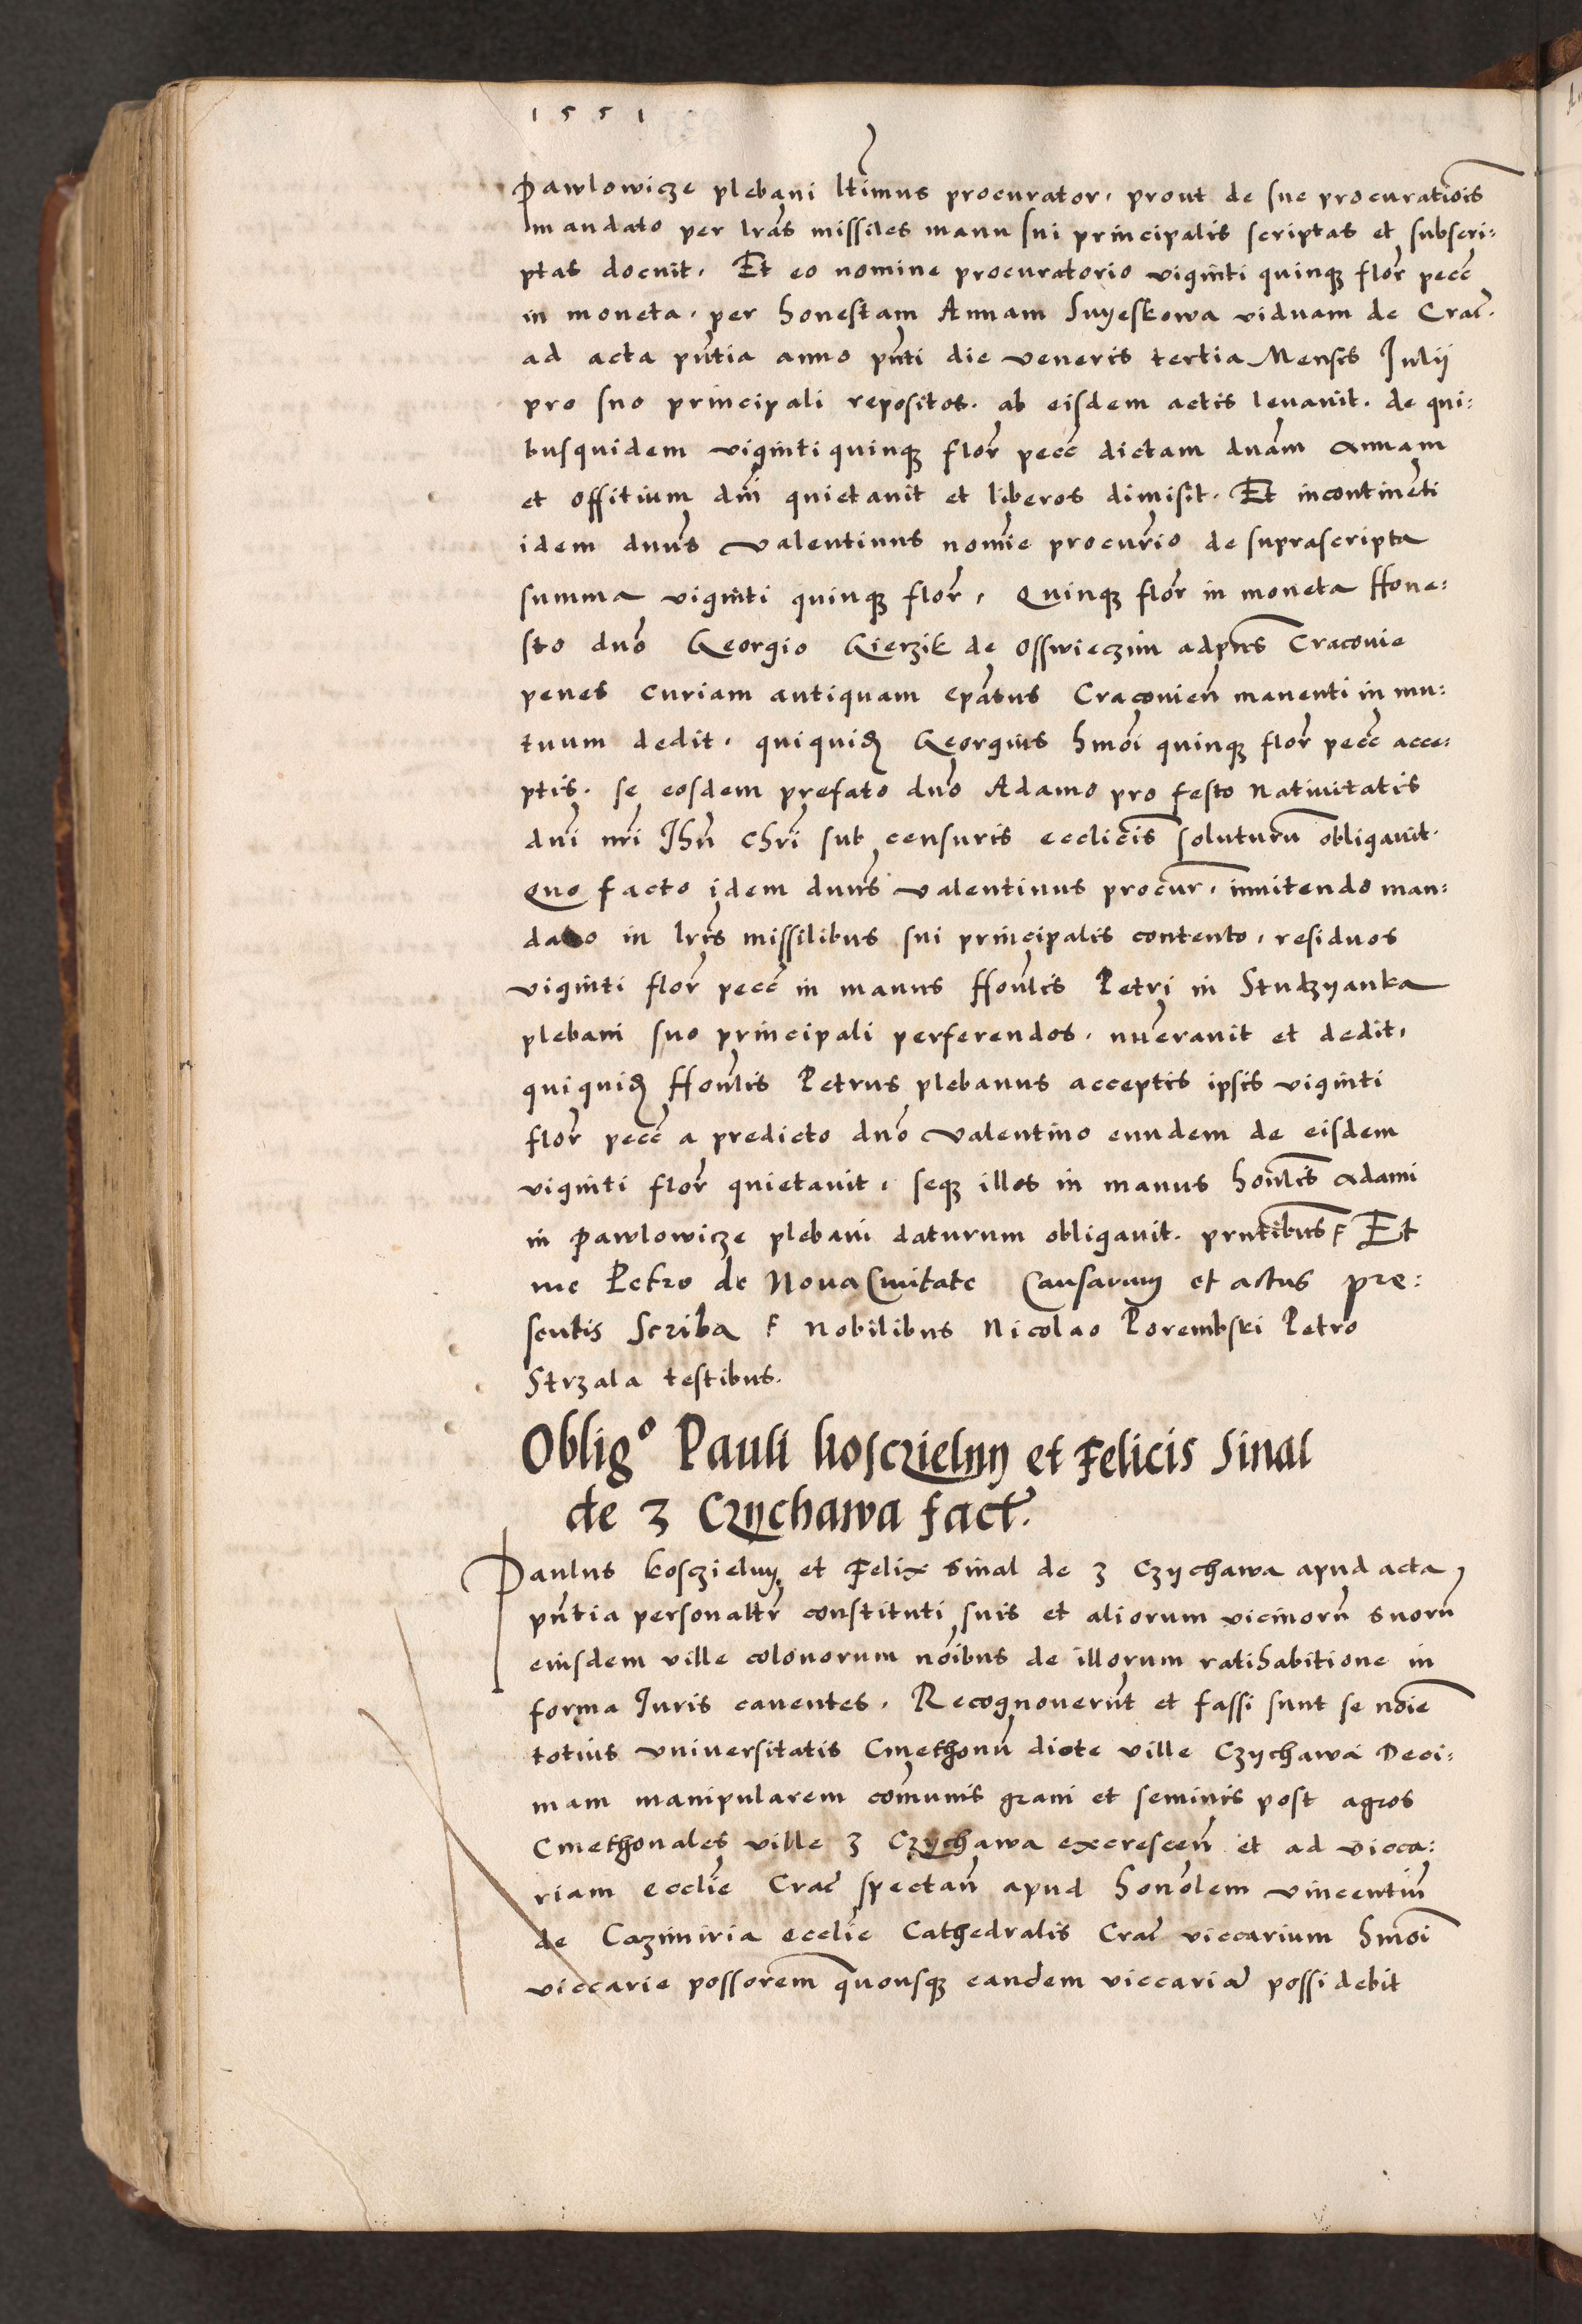 1551
Pawlowicze plebani ltimus procurator, prout de sue procuratiois
mandato per lras missiles manu sui principalis scriptas et subscri:
ptas docuit. Et eo nomine procuratorio viginti quinqꝫ flor pecc
in moneta, per honestam Annam Snyeskowa viduam de Crac.
ad acta pntia anno pnti die veneris tertia Mensis Julij
pro suo principali repositos, ab eisdem actis levavit. de qui:
busquidem viginti quinqꝫ flor pecc dictam dnam Annam
et offitium dni quietavit et liberos dimisit. Et incontineti
idem dnus Valentinus nomie procurio de suprascripta
summa viginti quinqꝫ flor, Quinqꝫ flor in moneta Hone:
sto dno Georgio Gierzik de Osswieczim adpns Cracovie
penes curiam antiquam Epatus Cracovien manenti in mu:
tuum dedit, quiquidꝫ Georgius hmoi quinqꝫ flor pecc acce:
ptis, se eosdem prefato dno Adamo pro festo Nativitatis
dni nri Jhu Chri sub censuris ecclicis soluturu obligavit.
Quo facto idem dnus Valentinus procur. innitendo man:
dato in lris missilibus sui principalis contento, residuos
viginti flor pecc in manus Honlis Petri in Studzyanka
plebani suo principali perferendos, nueravit et dedit,
quiquidꝫ Honlis Petrus plebanus acceptis ipsis viginti
flor pecc a predicto dno Valentino eundem de eisdem
viginti flor quietavit, seqꝫ illos in manus honlis Adami
in Pawlowicze plebani daturum obligavit. prntibus Et
me Petro de Nova Civitate Causarum et actus pre:
sentis Scriba Nobilibus Nicolao Porembski Petro
Strzala testibus.
Obligº Pauli Koscrielny et Felicis Sinal
de 3 Czychawa fact.
Paulus Kosczielny et Felix Sinal de 3 Czychawa apud acta
pntia personaltr constituti suis et aliorum vicinoru suoru
eiusdem ville colonorum noibus de illorum ratihabitione in
forma Juris caventes, Recognoverut et fassi sunt se noie
totius universitatis Cmethonu dicte ville Czychawa Deci:
mam manipularem comunis grani et seminis post agros
Cmethonales ville 3 Czychawa excrescen et ad vicca:
riam ecclie Crac spectan apud honolem Vincentiu
de Cazimiria ecclie Cathedralis Crac viccarium hmoi
viccarie possorem quousqꝫ eandem viccaria possidebit